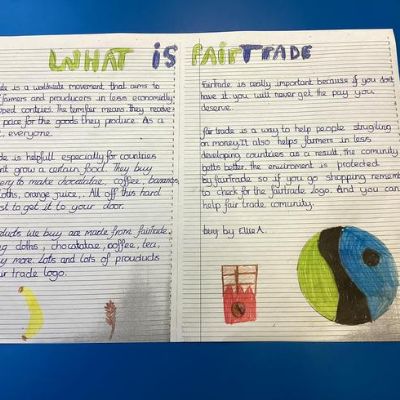 WHAT iS fAiRTRADE
de is a worldwide movement, that aims to
farmers and prouducers in less economically
ped contries. The term fair means they receive
pace for the goods they produce. As a
, everyone.
de is helpfull especially for countries
nt grow a certain food. they buy
ery to make chocalatae, coffee, bananas,
loths, orange juice,. All off this hard
st to get it to your door.
oducts we buy are made from fairtrade.
ng cloths, chocatalae, coffee, tea,
y more. Lots and lots of prouducts
air trade logo.
fairtrade is really important because if you dont
have it you will never get the pay you
deserve.
fair trade is a way to help people struggling
on money. It also helps farmers in less
developing countries as a result, the comunity
gets better. the environment is protected
by fairtrade so if you go shopping remember
to check for the fairtrade logo. And you can
help fair trade comunity.
by Ellie A.